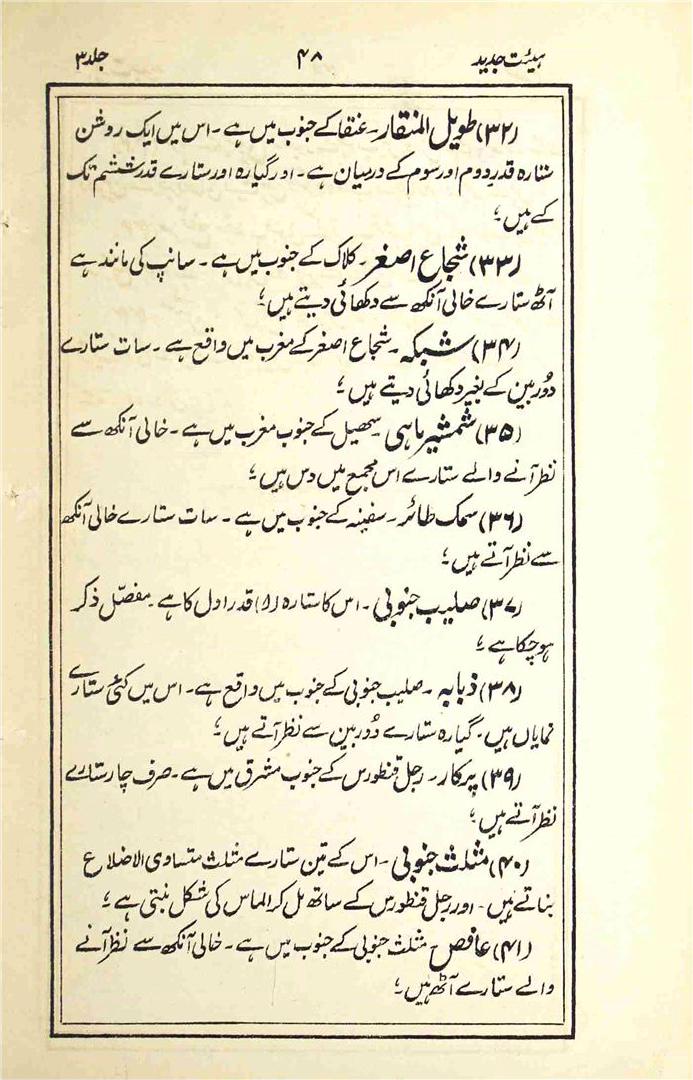 ہیئت جدید ۴۸ جلد ۳
(۳۲) طویل المنقار۔ عنقا کے جنوب میں ہے۔ اس میں ایک روشن
ستارہ قدر دوم اور سوم کے درمیان ہے۔ اور گیارہ اور ستارے قدر ششم تک
کے ہیں ؛
(۳۳) شجاع اصغر۔ کلاک کے جنوب میں ہے۔ سانپ کی مانند ہے
آٹھ ستارے خالی آنکھ سے دکھائی دیتے ہیں ؛
(۳۴) شبکہ۔ شجاع اصغر کے مغرب میں واقع ہے۔ سات ستارے
دُوربین کے بغیر دکھائی دیتے ہیں ؛
(۳۵) شمشیر ماہی۔ سہیل کے جنوب مغرب میں ہے۔ خالی آنکھ سے
نظر آنے والے ستارے اس مجمع میں دس ہیں ؛
(۳۶) سمک طائر۔ سفینہ کے جنوب میں ہے۔ سات ستارے خالی آنکھ
سے نظر آتے ہیں ؛
(۳۷) صلیب جنوبی۔ اس کا ستارہ (لا) قدر اول کا ہے۔ مفصّل ذکر
ہوچکا ہے ؛
(۳۸) ذبابہ۔ صلیب جنوبی کے جنوب میں واقع ہے۔ اس میں کئی ستارے
نمایاں ہیں۔ گیارہ ستارے دُوربین سے نظر آتے ہیں ؛
(۳۹) پرکار۔ رجل قنطورس کے جنوب مشرق میں ہے۔ صرف چار ستارے
نظر آتے ہیں ؛
(۴۰) مثلث جنوبی۔ اس کے تین ستارے مثلث متساوی الاضلاع
بناتے ہیں۔ اور رجل قنطورس کے ساتھ مل کر الماس کی شکل بنتی ہے ؛
(۴۱) عافص۔ مثلث جنوبی کے جنوب میں ہے۔ خالی آنکھ سے نظر آنے
والے ستارے آٹھ ہیں ؛